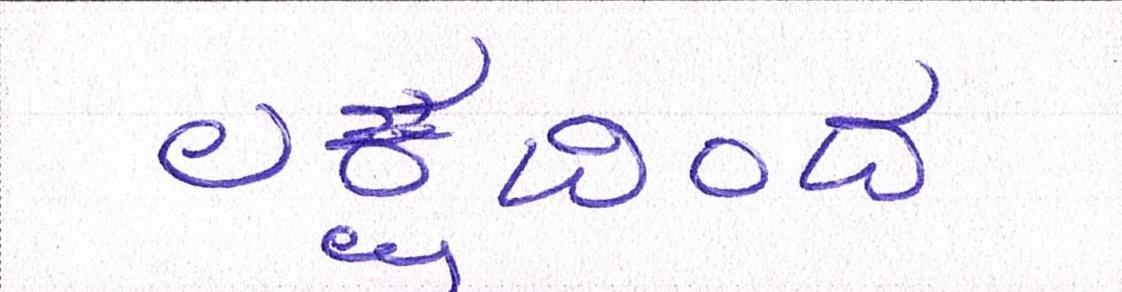 ಲಕ್ಷ್ಯದಿಂದ